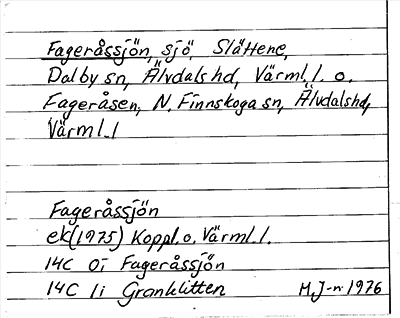 Fageråssjön, sjö, Slättene,
Dalby sn, Älvdals hd, Värml. l. o.
Fageråsen, N. Finnskoga sn, Älvdals hd,
Värml. l
Fageråssjön
ek (1975) Koppl. o. Värml. l.
14C 0i Fageråssjön
14C 1i Granklitten M.J-n 1976